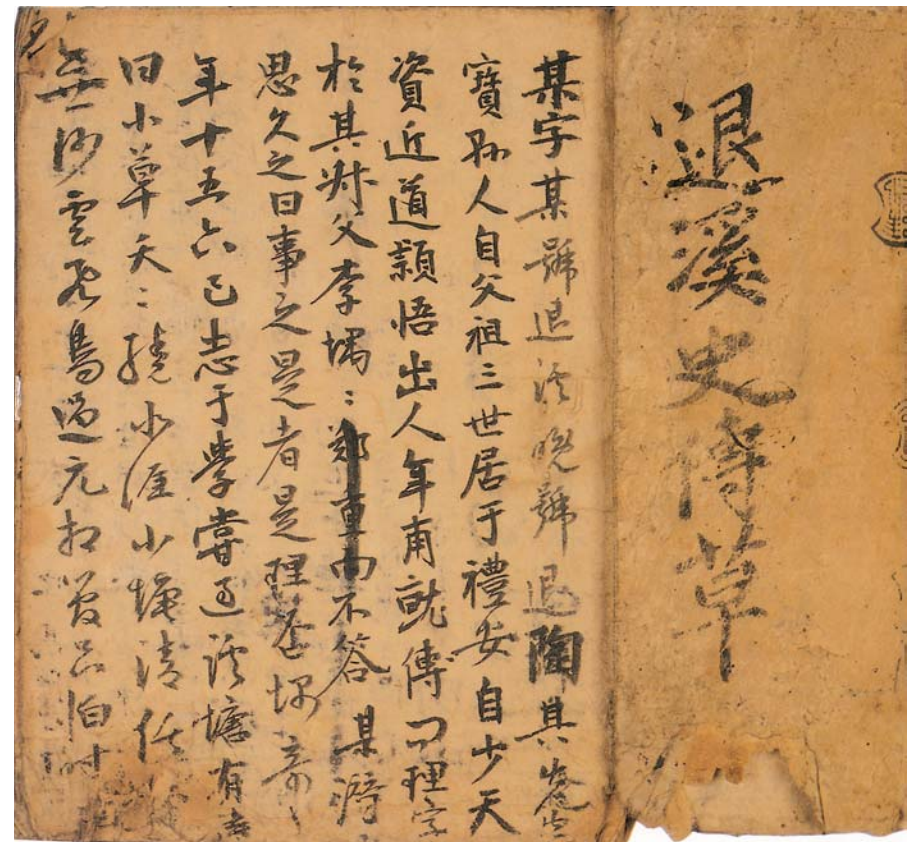 退溪史傳草
某字某號退溪晚號退陶其先
寶孫人自父祖三世居于禮安自少天
資近道穎悟出人年甫就傅問理字
於其叔父李堣〻鄭重而不答某潛
思久之曰事之是者是理耶堣奇
年十五六已志于學嘗過溪塘有
曰小草夭〻繞水涯小塘清
無沙雲飛鳥過元相管只怕時